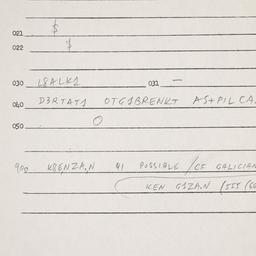 021 $
022 $
030 LSALK1 031 —
040 D3RTAT1 OTG1BRENKT AS+PIL CA.
050 O
900 KRENZA,N 41 POSSIBLE / CF GALICIAN
KEN G1ZA.N / III (